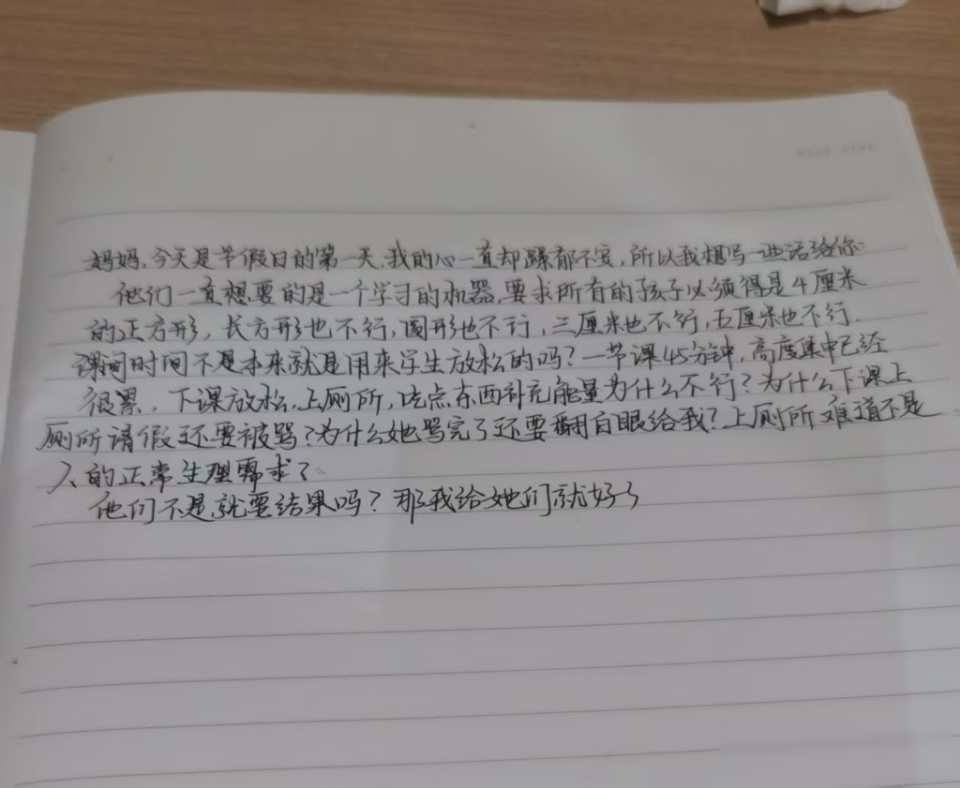 妈妈,今天是节假日的第一天,我的心一直却躁郁不安,所以我想写一些话给你
他们一直想要的是一个学习的机器,要求所有的孩子必须得是4厘米
的正方形,长方形也不行,圆形也不行,三厘米也不行,五厘米也不行.
课间时间不是本来就是用来学生放松的吗?一节课45分钟,高度集中已经
很累,下课放松,上厕所,吃点东西补充能量为什么不行?为什么下课上
厕所请假还要被骂?为什么她骂完了还要翻白眼给我?上厕所难道不是
人的正常生理需求?
他们不是就要结果吗?那我给她们就好了